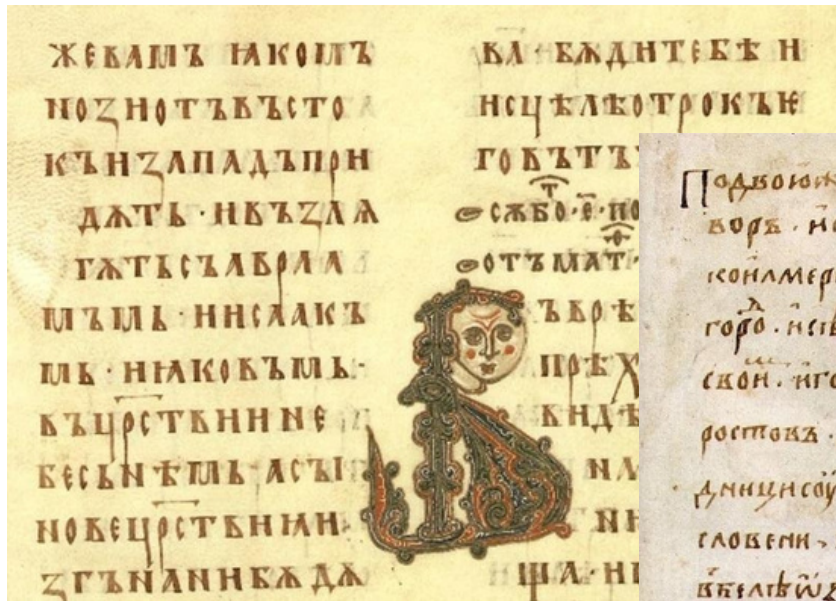 ЖЕВАМЪ ꙖКОМЪ
НОЗИОТЪВЪСТО
КЪИЗАПАДЪПРИ
ДѪТЬ·ИВЪЗЛѦ
ГѪТЬСЪАВРАА
МЪМЬ·ИИСААКЪ
МЬ·ИИꙖКОВЪМЬ·
ВЪЦР҃СТВИИНЕ
БЕСЬНѢМЬ·АСЫ
НОВЕЦР҃СТВИꙖИ
ЗГЪНАНИБѪДѪ
ВА·БѪДИТЕБѢ И
ИСЦѢЛѢОТРОКЪѤ
ГОВЪТЪ
СѪБОⷮ·Е҃·ПО
ОТЪМАТⷴ·
ЪВРѢ
ПРѢХ
ВИДѢ
ИЛ
ША·Н
Подвою
воръ·
конлмер
горо·
свои·иго
ростовъ·
дници
словени·